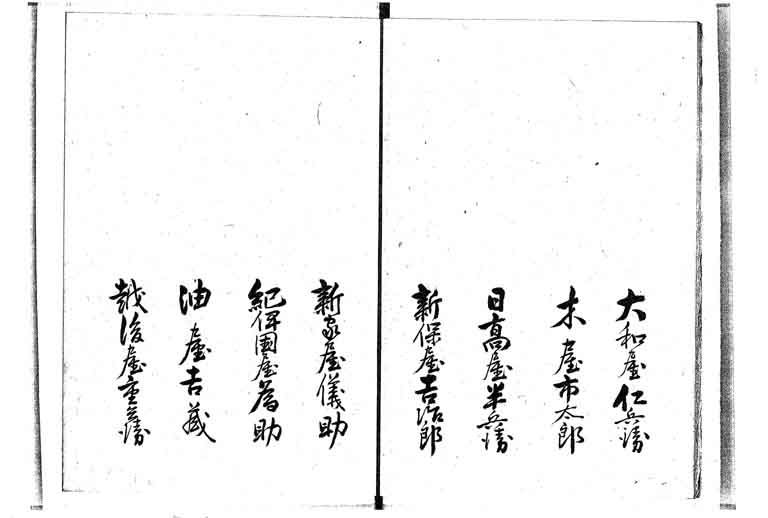 大和屋仁兵衛
木屋市太郎
日高屋半兵衛
新保屋吉治郎
新家屋儀助
紀伊國屋為助
油屋吉蔵
越後屋重兵衛